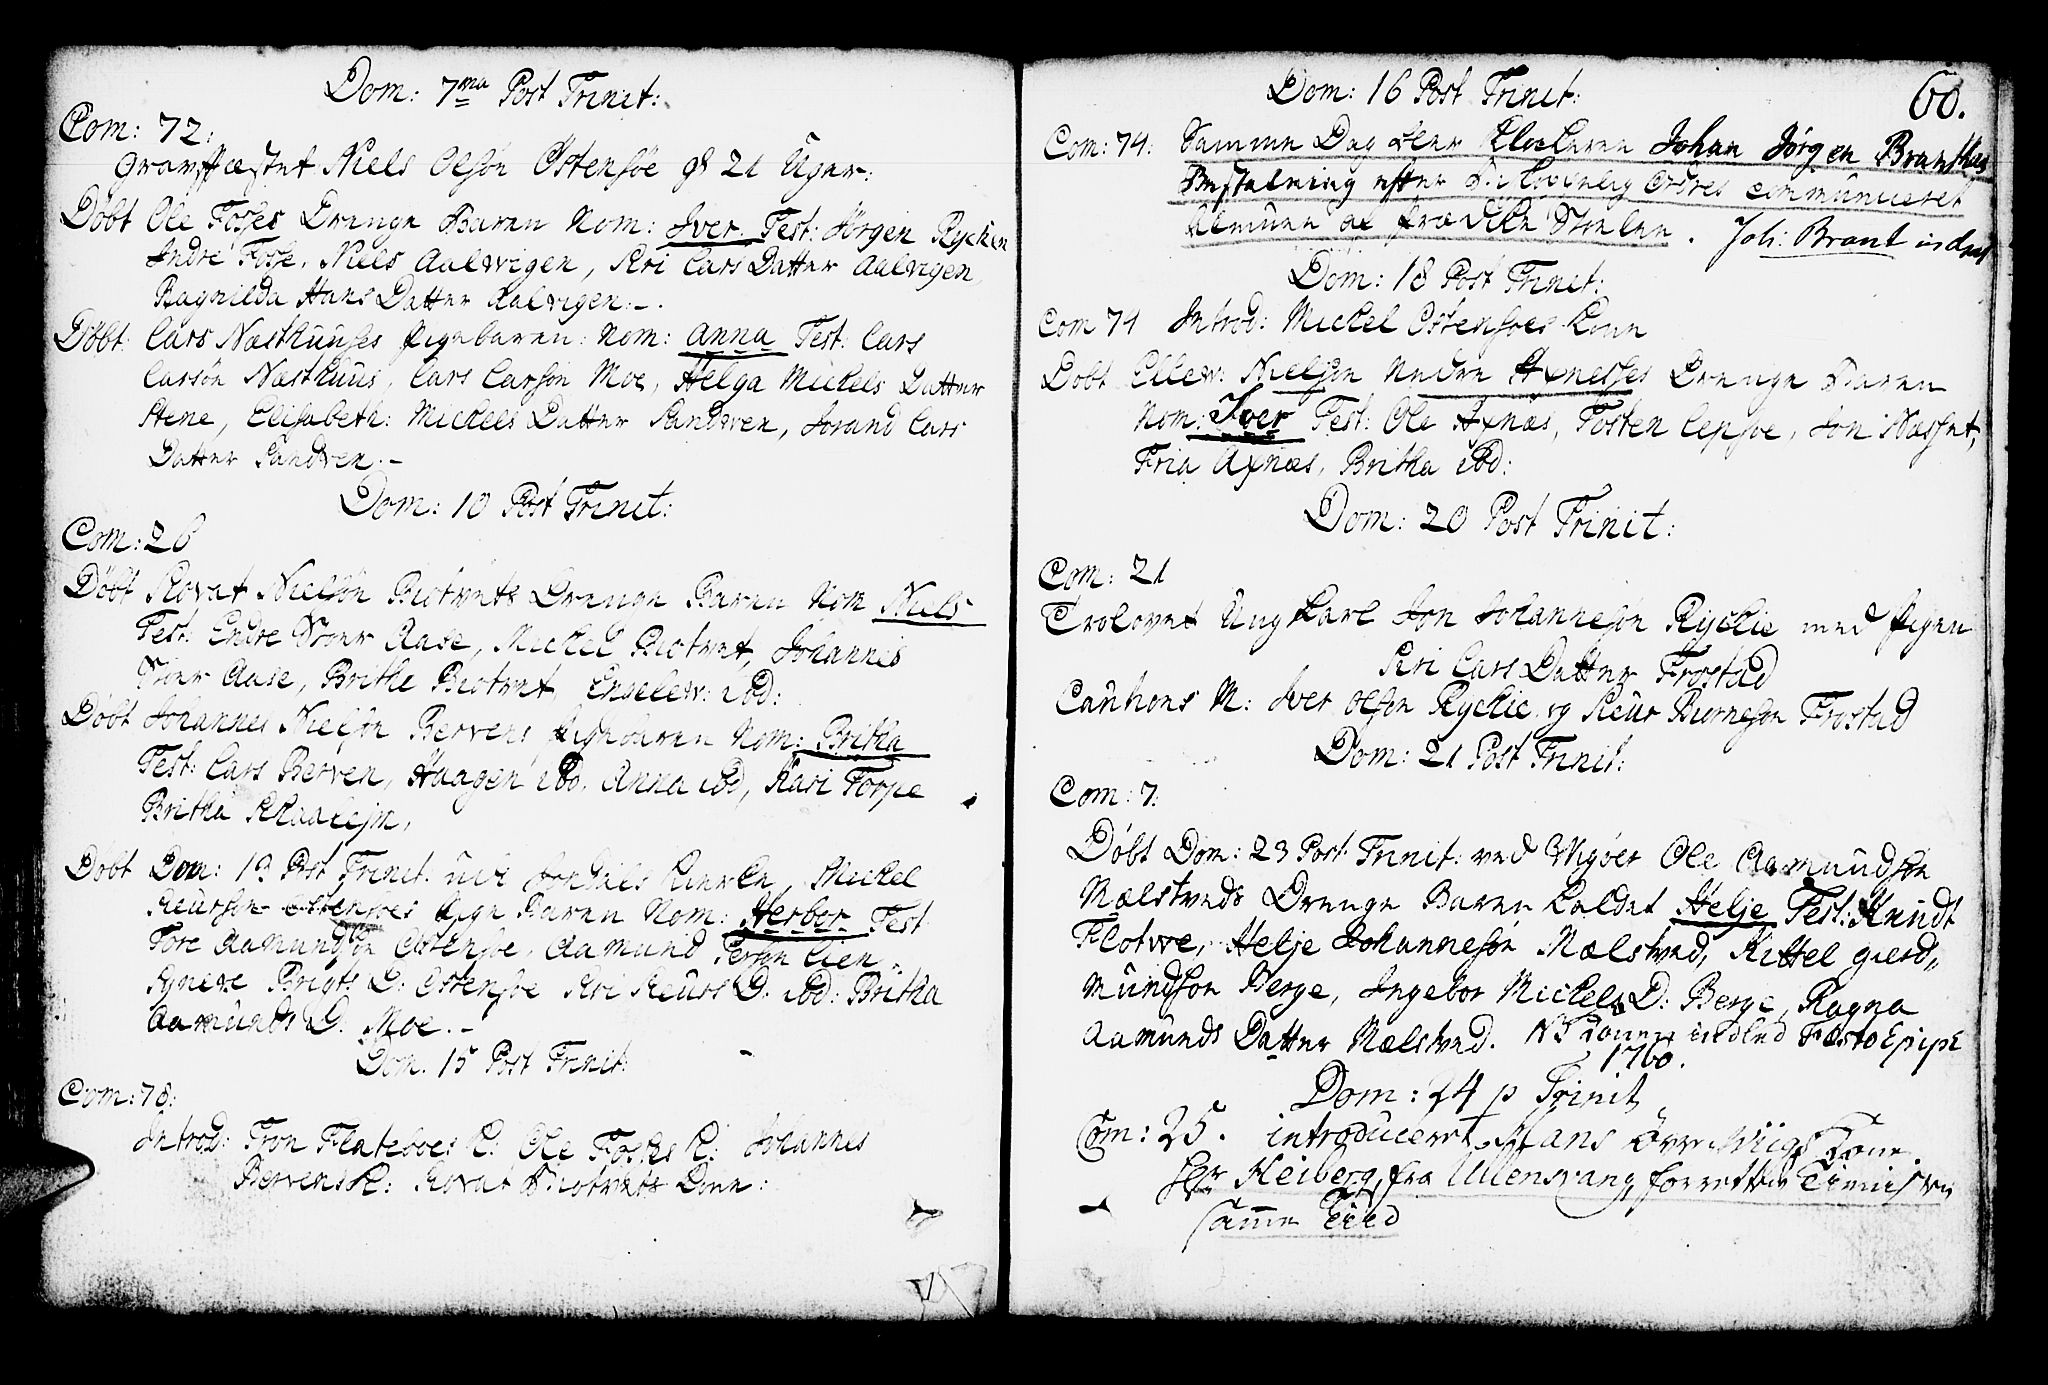 Dom: 7ma Post Trinit:
Com: 72:
Gravfæstet Niels Olsøn Østensøe g 21 Uger:
Døbt Ole Fosses Drenge Barn Nom: Iver. Test: Jørgen Rycken
Indre Fosse, Niels Aalvigen, Kri Lars Datter Aalvigen,
Ragnilda Hans Datter Aalvigen.-.
Døbt: Lars Næsthuuses Pigebarn: Nom: Anna Test: Lars
Larsøn Næsthuus, Lars Larson Moe, Helga Mickels Datter
Stene, Elisabeth: Mickels Datter Sandven, Jorand Lars
Datter Sandven.-
Dom: 10 Post Trinit:
Com: 26
Døbt Rovat Nielsøn Biotvets Drenge Barn Nom Niels
Test: Endre Aase, Mickel Biotvet, Johannes
Aase, Brithe Biotvet, ibd:
Døbt Johannes Nielsøn Bervens Pigebarn Nom: Britha
Test: Lars Berven, Haagen ibd. Anna ibd, Kari Torpe
Britha
Døbt Dom: 13 Post Trinit. udi Kircke, Mickel
Siursøn Østensøes Pige Barn Nom: Herbor Test
Tore Aamundsøn Østensøe, Aamund Persøn Lien,
Agnete Brigts D: Østensøe Kri Siurs D: ibd: Britha
Aamunds D. Moe.-
Dom. 15 Post Trinit:
Com: 78:
Introd: Tron Flatebøes K: Ole Fosses K: Johannes
Bervens K: Rovat Biotvets Kone:
60.
Dom: 16 Post Trinit:
Com: 74: Samme Dag blev Klockeren Johan Jørgen Branthes
Bestalning efter ordres communiceret
af Prædike Stoelen. Joh: Brant
Dom: 18 Post Trinit:
Com 74 Introd: Mickel Østensøes Kone
Døbt Ellev: Nielsøn Nedre Axnesses Drenge Barn
Nom: Iver Test: Ole Axnæs, Tosten Lepsøe, Jon Næsset,
Tria Axnæs, Britha ibd:
Dom: 20 Post Trinit:
Com: 21
Trolovet Ung Karl Jon Johannesøn Ryckie med Pigen
Kri Lars Datter Frostad
Cautions M: Iver Olsøn Ryckie og Siur Biornesøn Frostad
Dom: 21 Post Trinit:
Com: 7:
Døbt Dom: 23 Post Trinit: ved Wigøer Ole Aamundsøn
Mælstveds Drenge Barn kaldet Helje Test: Knudt
Flotve, Helje Johannesøn Mælstved, Kittel gierd„
mundson Berge, Ingebor Mickels D: Berge, Ragna
Aamunds Datter Mælstved. NB konen indled Festo Epiph
1760.
Dom: 24 p Trinit
Com: 25. introduceret Hans Øvre Viigs Kone.
Hr Heiberg fra Ullensvang forrettede Tienisten
samme Tiid